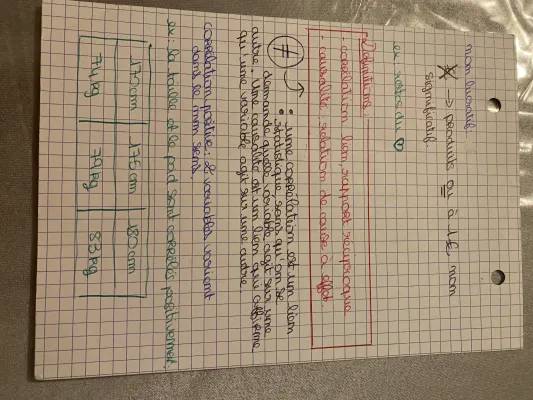 non lucratif
→ produits ou à 1€ non
significatif
ex: restos du ♡
Définitions:
- corrélation: lien, rapport réciproque
- causalité: relation de cause à effet.
≠
une corrélation est un lien
statistique sans qu'on se
demande quelle variable agit sur une
autre. Une causalité est un lien qui affirme
qu'une variable agit sur une autre.
corrélation positive: 2 variables varient
dans le même sens.
ex: la taille et le poid sont corrélés positivement.
170cm 175cm 180cm
74kg 79kg 83kg